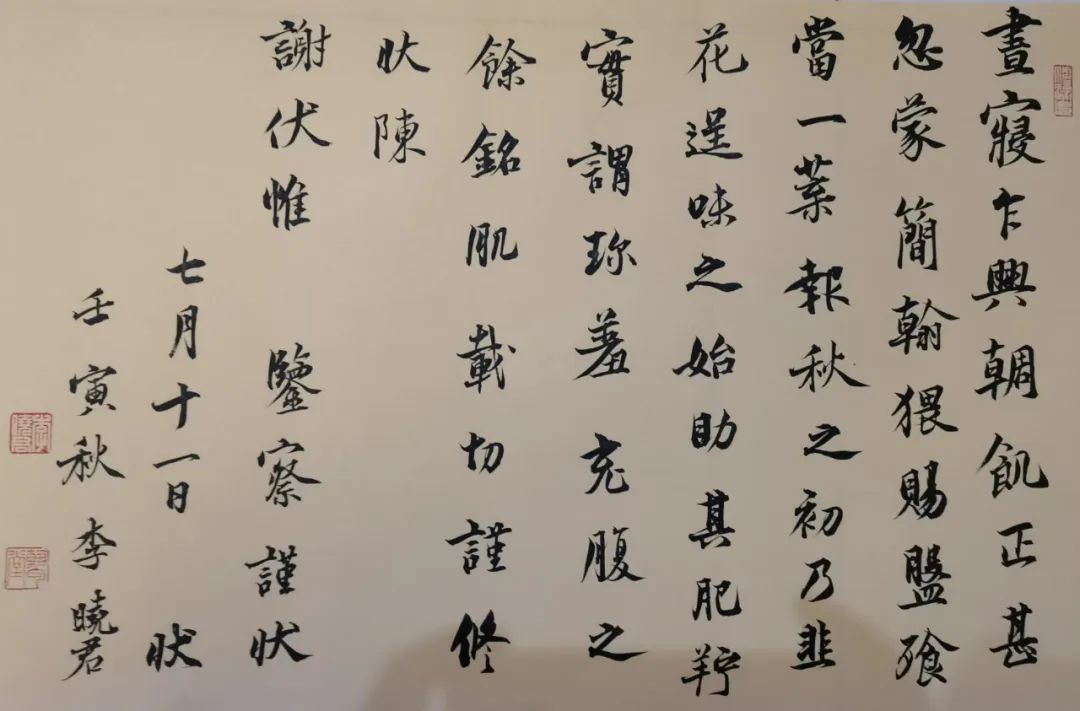 晝寢乍興朝飢正甚
忽蒙簡翰猥賜盤飧
當一葉報秋之初乃韭
花逞味之始助其肥羜
實謂珎羞充腹之
餘銘肌載切謹修
狀陳
謝伏惟鑒察謹狀
七月十一日狀
壬寅秋李曉君